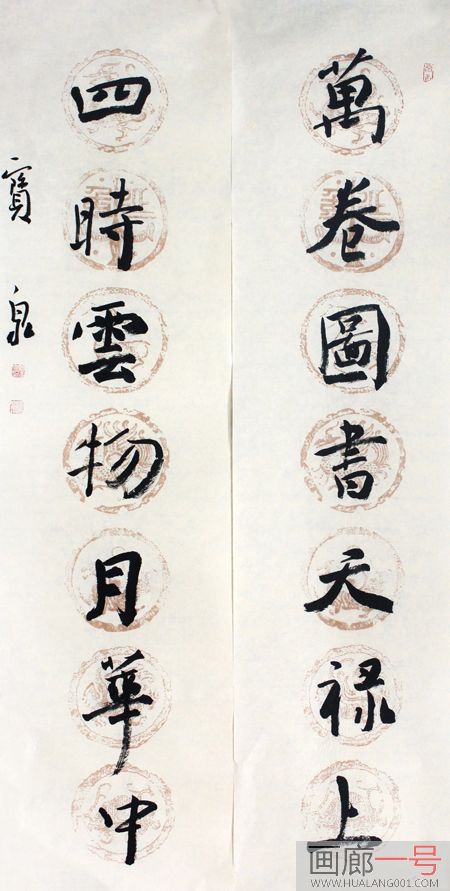 萬卷圖書天禄上
四時雲物月華中
寳泉
画廊一号
WWW.HUALANG001.COM